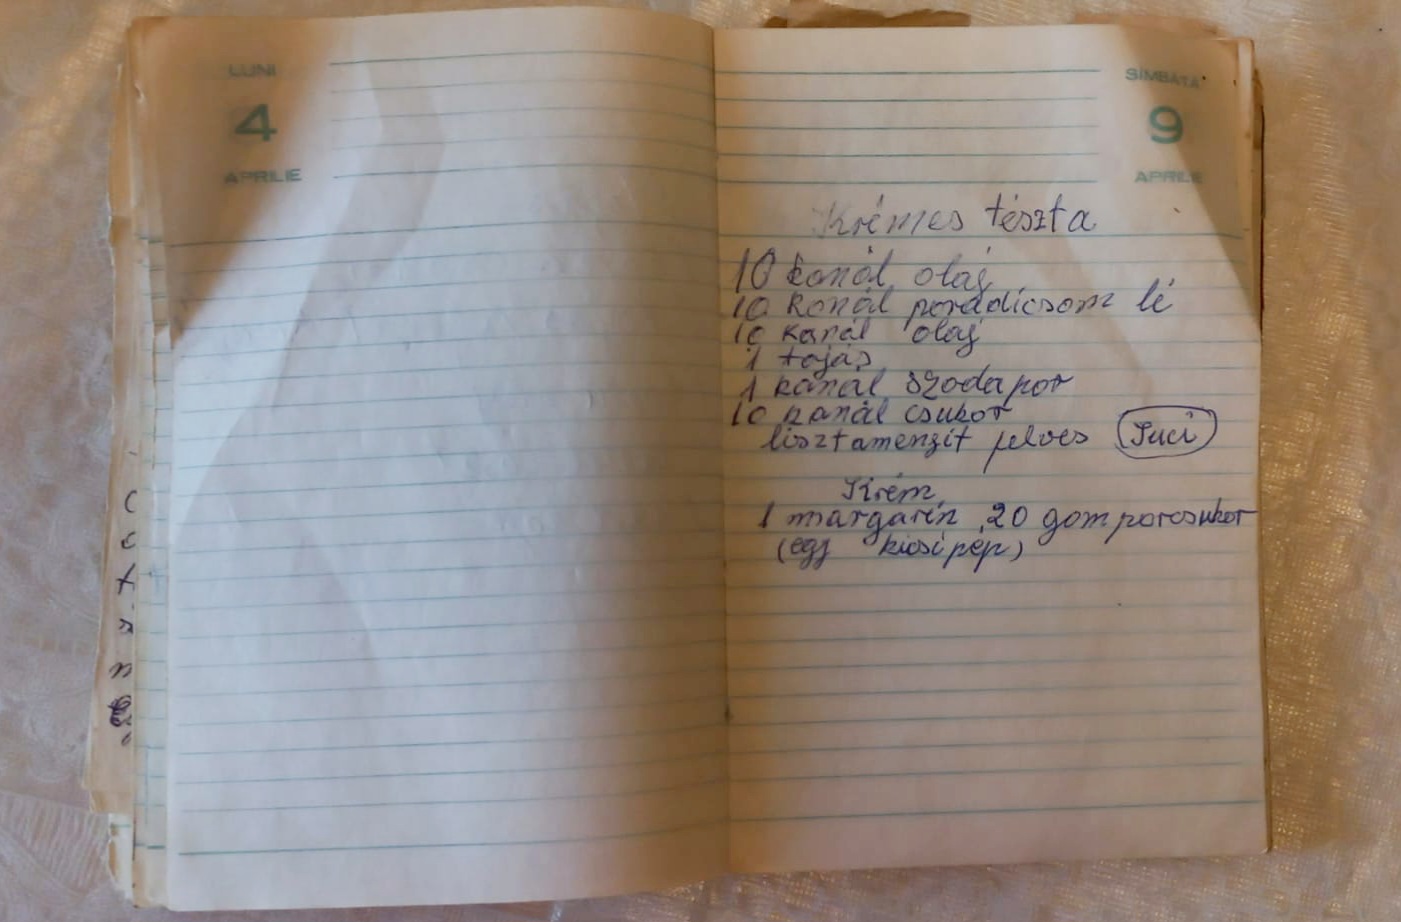 LUNI
4
APRILIE
SÎMBĂTĂ
9
APRILIE
Krémes tészta
10 kanál olaj
10 kanál poradicsom lé
10 kanál olaj
1 tojás
1 kanál szodapor
10 kanál csukor
lisztamenzit felves
Krém
1 margarin 20 gom porcsukor
(egy kicsi pép)